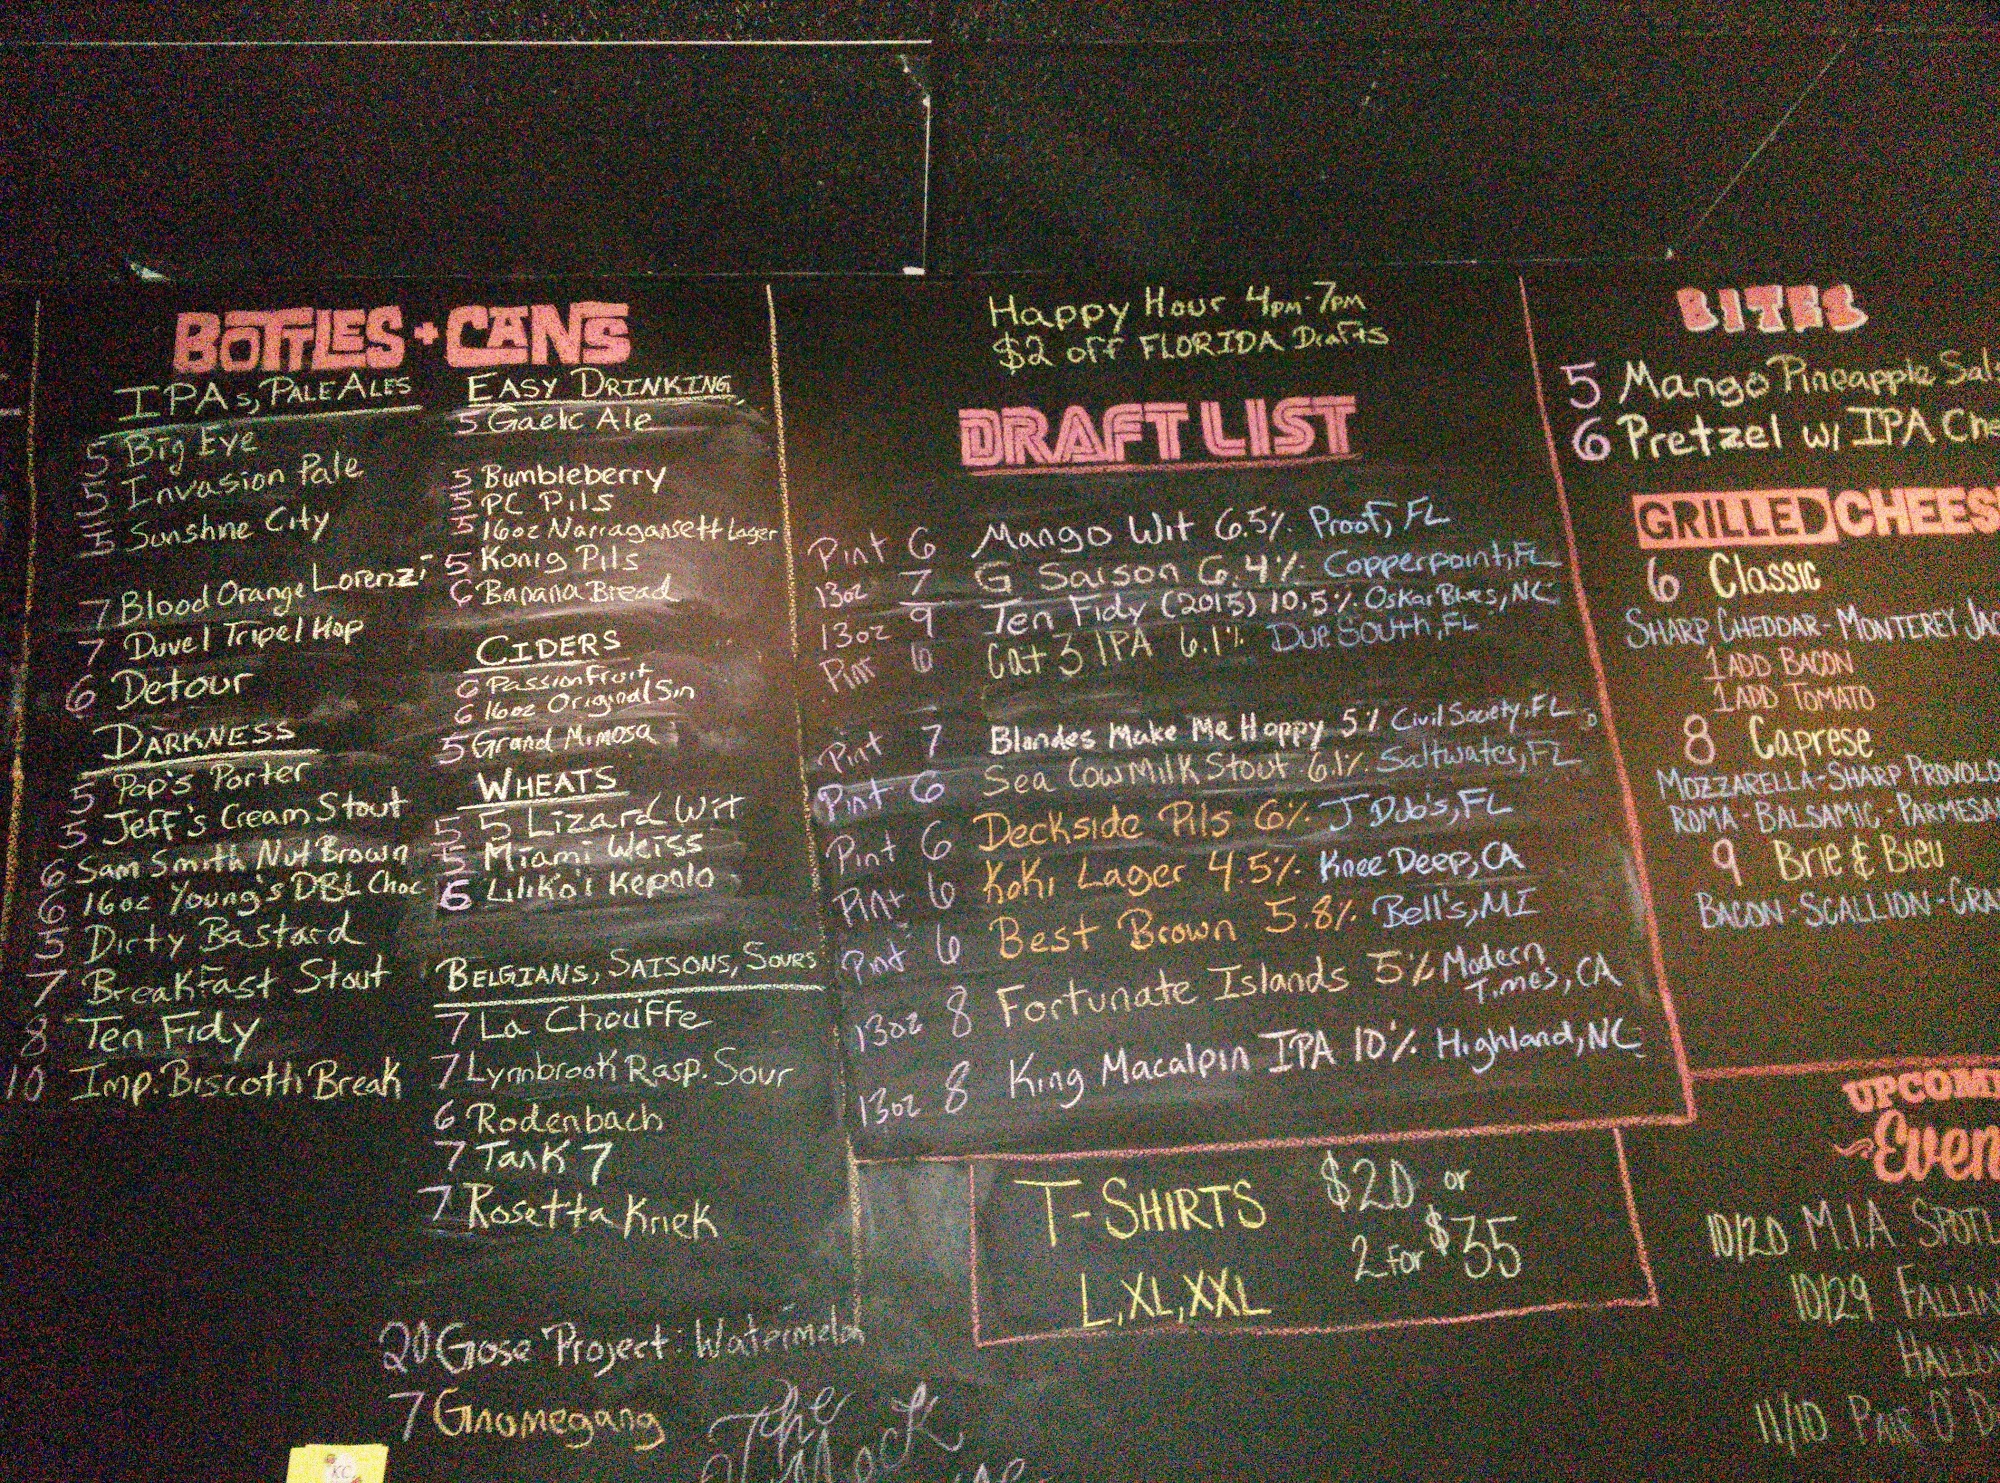 BOTTLES + CANS
IPAs, PALE ALES
5 Big Eye
5 Invasion Pale
5 Sunshne City
7 Blood Orange Lorenzi
7 Duvel Tripel Hop
6 Detour
DARKNESS
5 Pop's Porter
5 Jeff's Cream Stout
6 Sam Smith Nut Brown
6 16oz Young's DBL Choc
5 Dirty Bastard
7 Breakfast Stout
8 Ten Fidy
10 Imp. Biscotti Break
EASY DRINKING
5 Gaelic Ale
5 Bumbleberry
5 PC Pils
5 16oz Narragansett Lager
5 Konig Pils
6 Banana Bread
CIDERS
6 Passion Fruit
6 16oz Original Sin
5 Grand Mimosa
WHEATS
5 5 Lizard Wit
5 Miami Weiss
6 Liliko'i Kepolo
BELGIANS, SAISONS, SOURS
7 La Chouffe
7 Lynnbrook Rasp. Sour
6 Rodenbach
7 Tank 7
7 Rosetta Kriek
20 Gose Project: Watermelon
7 Gnomegang
The
KC
Happy Hour 4PM-7PM
$2 off FLORIDA Drafts
DRAFT LIST
Pint 6 Mango Wit 6.5% Proof, FL
13oz 7 G Saison 6.4% Copperpoint, FL
13oz 9 Ten Fidy (2015) 10.5% Oskar Blues, NC
Pint 6 Cat 3 IPA 6.1% Due South, FL
Pint 7 Blondes Make Me Hoppy 5% Civil Society, FL
Pint 6 Sea Cow Milk Stout 6.1% Saltwater, FL
Pint 6 Deckside Pils 6% J Dub's, FL
Pint 6 KoKi Lager 4.5% Knee Deep, CA
Pint 6 Best Brown 5.8% Bell's, MI
13oz 8 Fortunate Islands 5% Modern Times, CA
13oz 8 King Macalpin IPA 10% Highland, NC
T-SHIRTS $20 or
2 for $35
L, XL, XXL
BITES
5 Mango Pineapple Sals
6 Pretzel w/ IPA Che
GRILLED CHEES
6 Classic
SHARP CHEDDAR - MONTEREY JAC
1 ADD BACON
1 ADD TOMATO
8 Caprese
MOZZARELLA - SHARP PROVOLO
ROMA - BALSAMIC - PARMESA
9 Brie & Bleu
BACON - SCALLION - CRA
UPCOM
Even
10/20 M.I.A. SPOTL
10/29 FALLIN
HALLO
11/10 PAIR O' D